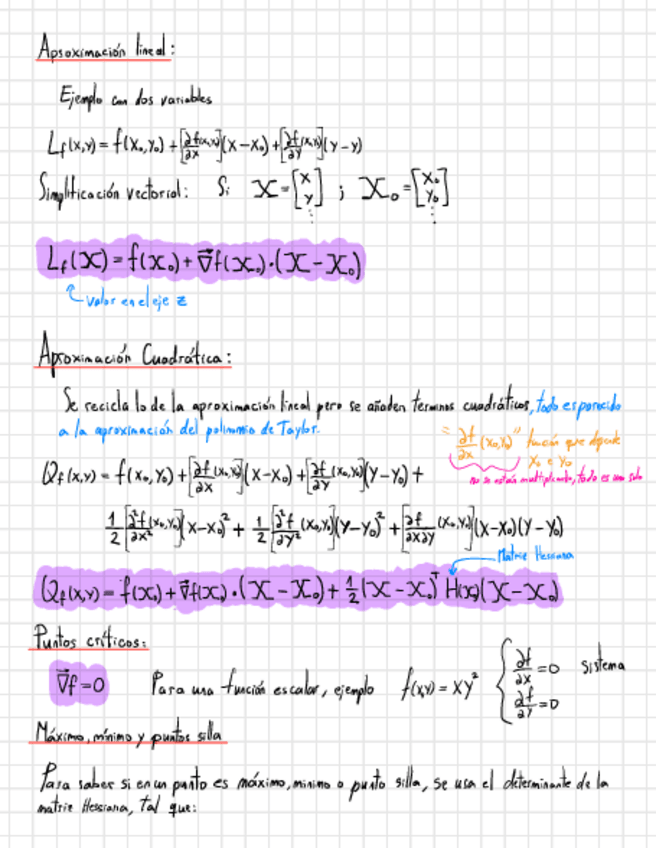 Aproximación lineal:
Ejemplo con dos variables
Lf(x,y) = f(x₀,y₀) + [∂f(x₀,y₀)/∂x](x-x₀) + [∂f(x₀,y₀)/∂y](y-y)
Simplificación vectorial: Si X = [x y ⋮] ; X₀ = [x₀ y₀ ⋮]
Lf(X) = f(X₀) + ∇⃗f(X₀)·(X-X₀)
valor en el eje z
Aproximación Cuadrática:
Se recicla lo de la aproximación lineal pero se añaden terminos cuadráticos, todo es parecido
a la aproximación del polinomio de Taylor.
"∂f/∂x (x₀,y₀)" función que depende
x₀ e y₀
no se están multiplicando, todo es uno solo
Qf(x,y) = f(x₀,y₀) + [∂f/∂x (x₀,y₀)](x-x₀) + [∂f/∂y (x₀,y₀)](y-y₀) +
1/2 [∂²f/∂x² (x₀,y₀)](x-x₀)² + 1/2 [∂²f/∂y² (x₀,y₀)](y-y₀)² + [∂f/∂x∂y (x₀,y₀)](x-x₀)(y-y₀)
Matriz Hessiana
Qf(x,y) = f(X₀) + ∇⃗f(X₀)·(X-X₀) + 1/2 (X-X₀)ᵀ H(X₀)(X-X₀)
Puntos críticos:
∇⃗f = 0 Para una función escalar, ejemplo f(x,y) = xy² { ∂f/∂x = 0 ∂f/∂y = 0 Sistema
Máximo, mínimo y puntos silla
Para saber si en un punto es máximo, mínimo o punto silla, se usa el determinante de la
matriz Hessiana, tal que: